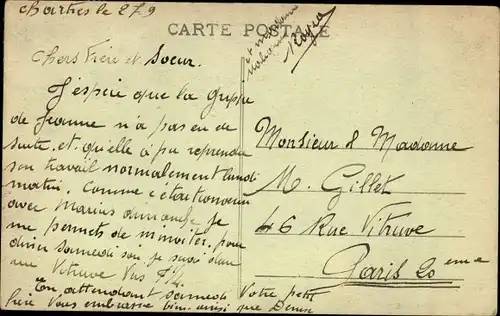 Chartres le 27 9
CARTE POSTALE
Chers Frère et Soeur.
J'espère que la Grippe
de Jeanne n'a pas eu de
suite. et qu'elle a pu reprendre
son travail normalement lundi
matin. Comme c'était convenu
avec Marius dimanche je
me permets de m'inviter pour
diner samedi soir je serai
rue Vitruve vers 7h
En attendant samedi Votre petit
frère Vous embrasse bien. ainsi que
Monsieur & Madame
M. Gillet
46 Rue Vitruve
Paris 20 eme